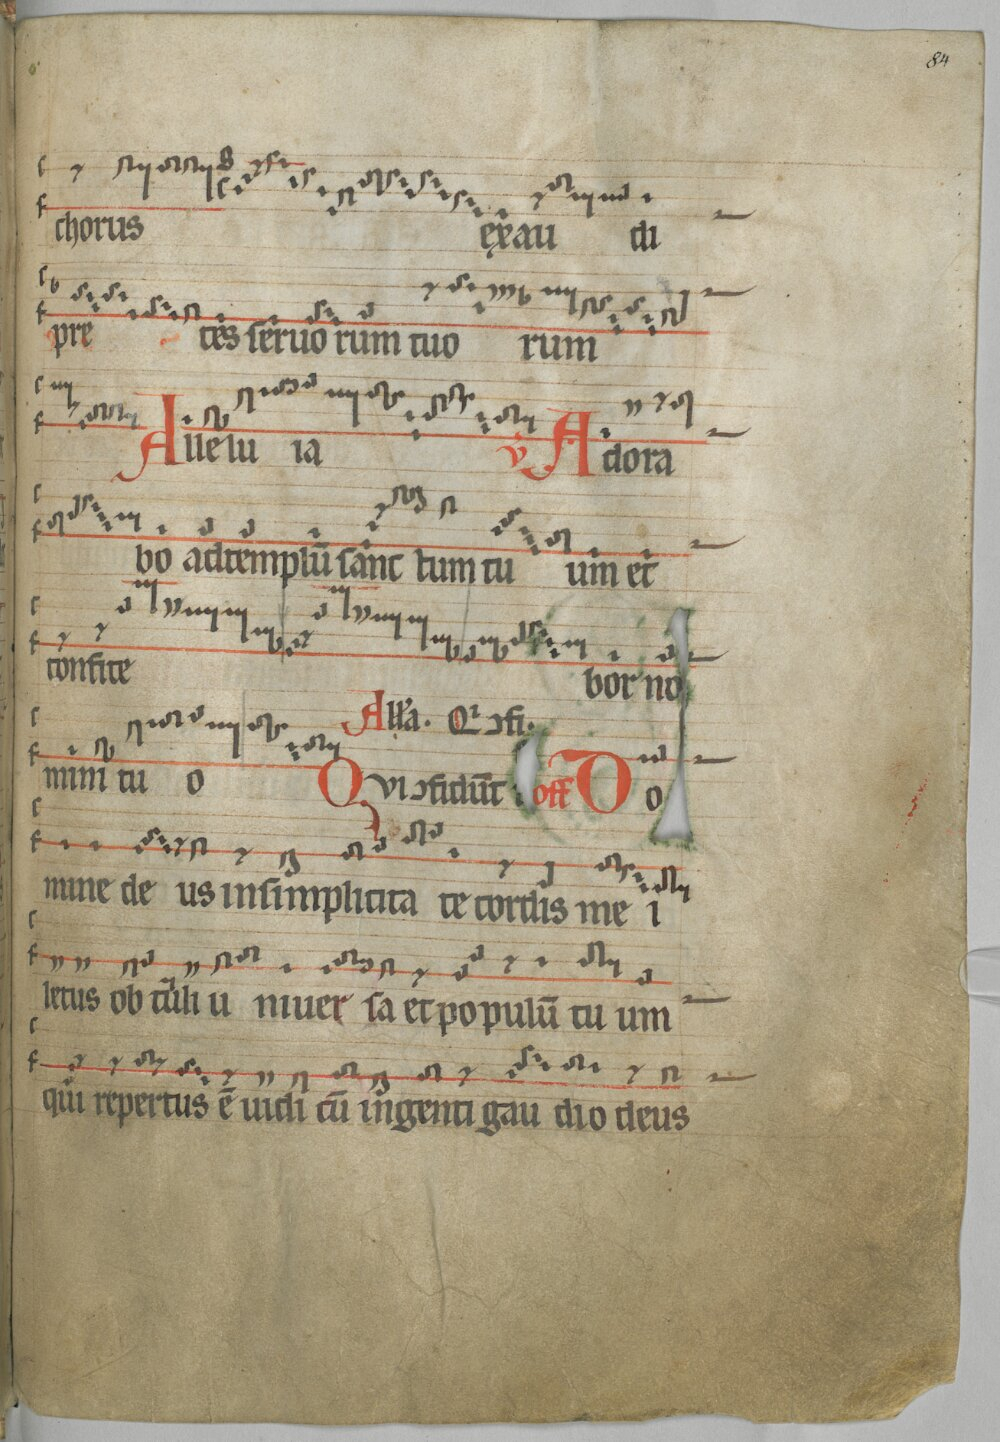 84
chorus exau di
pre ces seruo rum tuo rum
Alle lu ia v Adora
bo ad templū sanc tum tu um et
confite bor no
Allā. Qi ↄfi.
mini tu o Qvi ↄfidūt off Do
mine de us in simplicita te cordis me i
letus ob tuli u niuer sa et populū tu um
qui repertus ē uidi cū ingenti gau dio deus